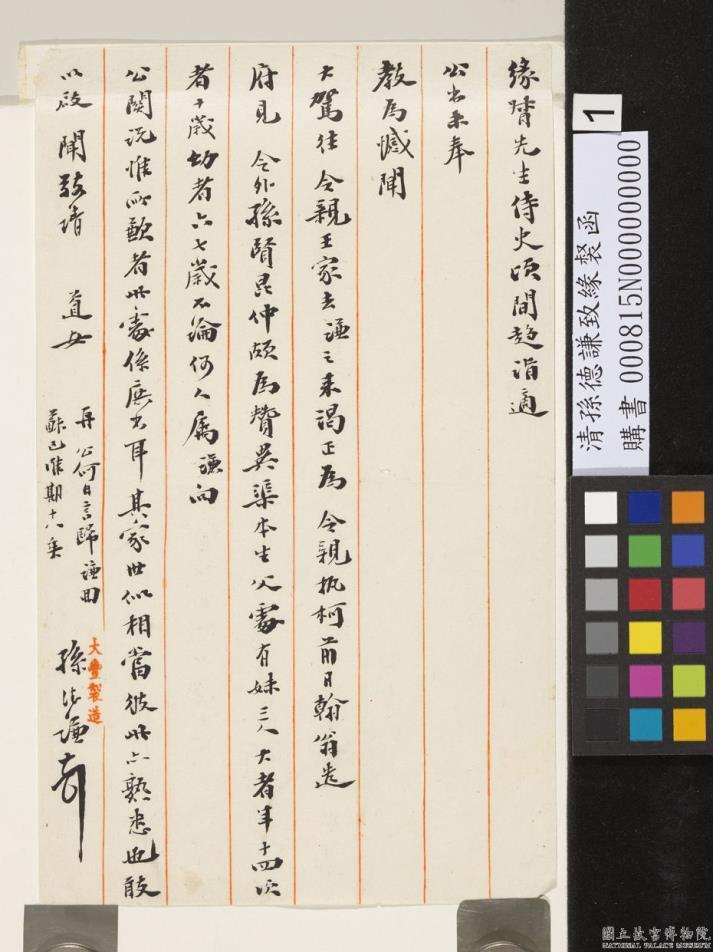 緣督先生侍史頃間趨詣適
公出未奉
教為憾聞
大駕往 令親王家去謙之來謁正為 令親執柯前日翰翁造
府見 令外孫賢昆仲頗為贊異渠本生父處有妹三人大者年十四次
者十歲幼者六七歲不論何人屬謙向
公關說惟所歉者此處係庶出耳其家世似相當彼此亦熟悉也敢
以啟聞敬請 道安
再 公何日言歸謙回
蘇已唯期十八乘
孫德謙頓
大豐製造
1
清孫德謙致緣督函
購書 000815N000000000
國立故宮博物院
NATIONAL PALACE MUSEUM